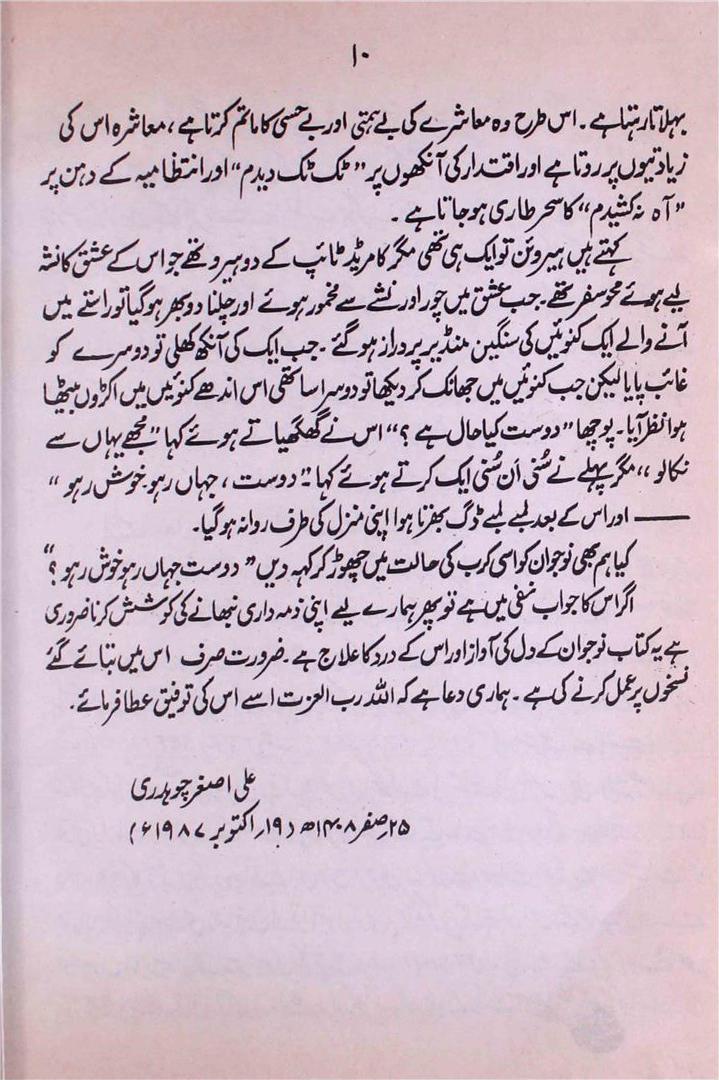 ۱۰
بہلاتا رہتا ہے۔ اس طرح وہ معاشرے کی بے ہمتی اور بے حسی کا ماتم کرتا ہے، معاشرہ اس کی
زیادتیوں پر روتا ہے اور اقتدار کی آنکھوں پر ”ٹک ٹک دیدم“ اور انتظامیہ کے دہن پر
”آہ نہ کشیدم“ کا سحر طاری ہو جاتا ہے۔
کہتے ہیں ہیروئن تو ایک ہی تھی مگر کامریڈ ٹائپ کے دو ہیرو تھے جو اس کے عشق کا نشہ
لیے ہوئے محو سفر تھے۔ جب عشق میں چور اور نشے سے مخمور ہوئے اور چلنا دوبھر ہو گیا تو راستے میں
آنے والے ایک کنوئیں کی سنگین منڈیر پر دراز ہو گئے۔ جب ایک کی آنکھ کھلی تو دوسرے کو
غائب پایا لیکن جب کنوئیں میں جھانک کر دیکھا تو دوسرا ساتھی اس اندھے کنوئیں میں اکڑوں بیٹھا
ہوا نظر آیا۔ پوچھا ”دوست کیا حال ہے؟“ اس نے گھگھیاتے ہوئے کہا ”مجھے یہاں سے
نکالو“ مگر پہلے نے سُنی اَن سُنی ایک کرتے ہوئے کہا: ”دوست، جہاں رہو خوش رہو“
—— اور اس کے بعد لمبے لمبے ڈگ بھرتا ہوا اپنی منزل کی طرف روانہ ہو گیا۔
کیا ہم بھی نوجوان کو اسی کرب کی حالت میں چھوڑ کر کہہ دیں ”دوست جہاں رہو خوش رہو؟“
اگر اس کا جواب نفی میں ہے تو پھر ہمارے لیے اپنی ذمہ داری نبھانے کی کوشش کرنا ضروری
ہے یہ کتاب نوجوان کے دل کی آواز اور اس کے درد کا علاج ہے۔ ضرورت صرف اس میں بتائے گئے
نسخوں پر عمل کرنے کی ہے۔ ہماری دعا ہے کہ اللہ رب العزت اسے اس کی توفیق عطا فرمائے۔
علی اصغر چوہدری
۲۵ صفر ۱۴۰۸ھ (۱۹ اکتوبر ۱۹۸۷ء)